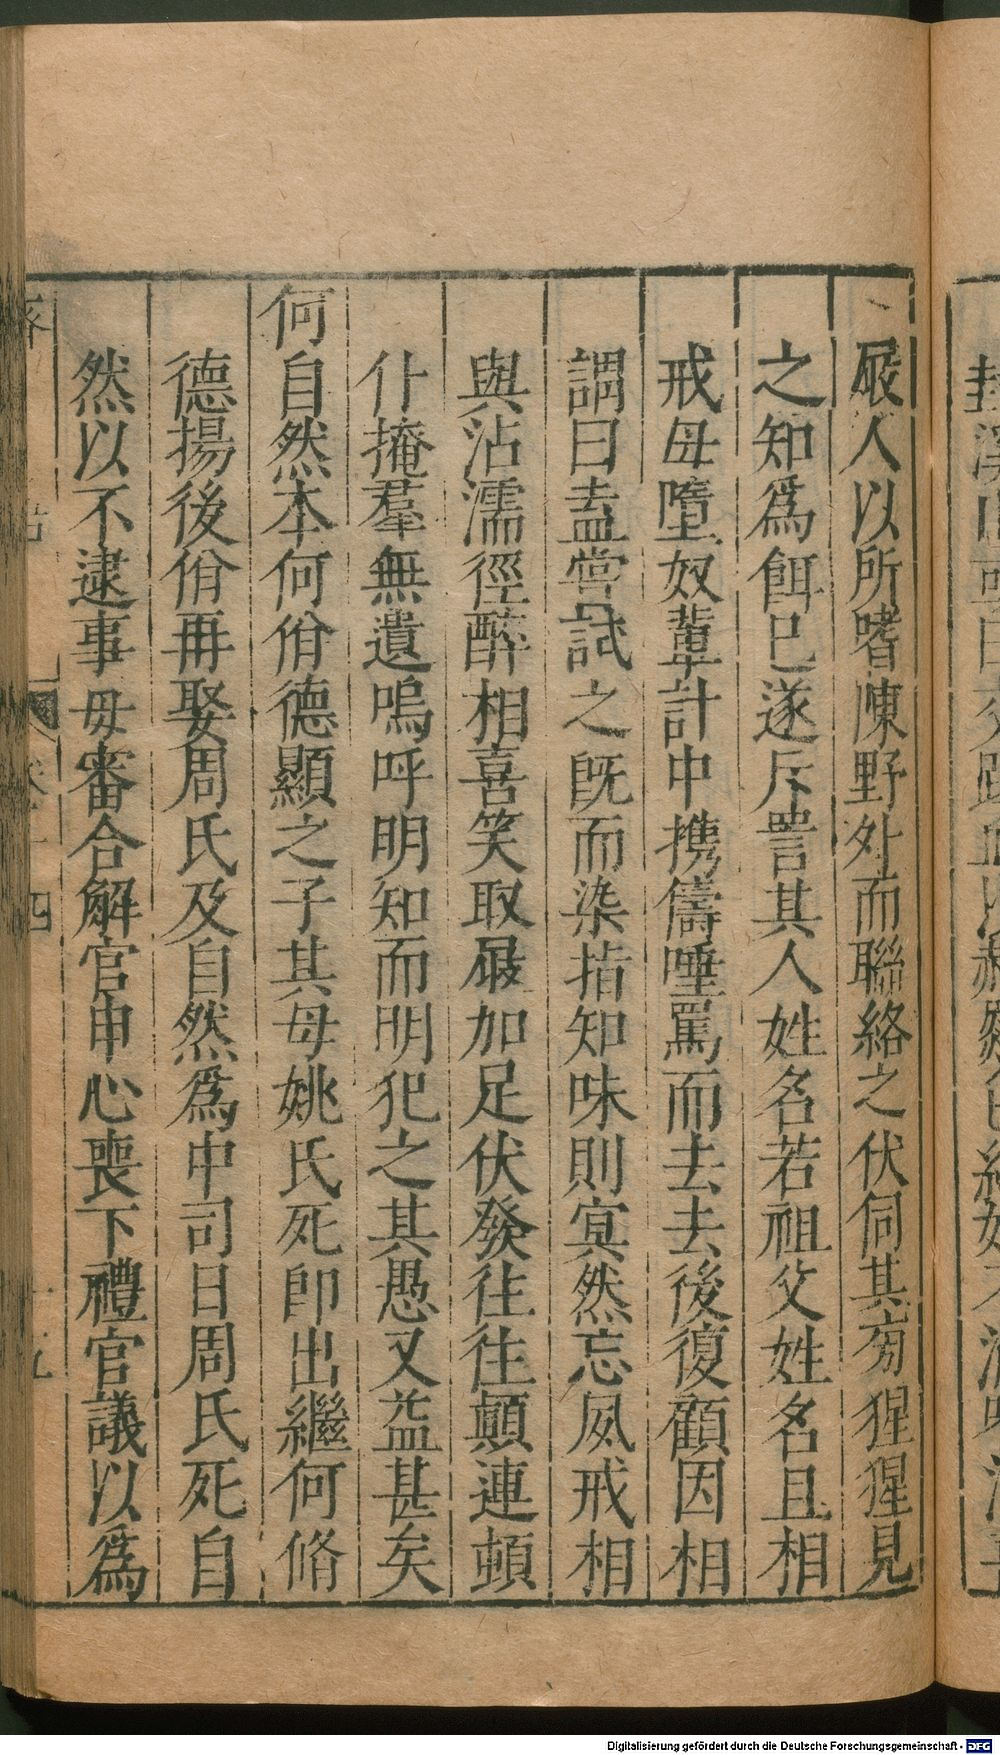 屐人以所嗜陳野外而聯絡之伏伺其旁猩猩見
之知爲餌已遂斥詈其人姓名若祖父姓名且相
戒毋墮奴輩計中携儔唾罵而去去後復顧因相
謂曰盍嘗試之旣而染指知味則㝠然忘夙戒相
與沾濡徑醉相喜笑取屐加足伏發往往顛連頓
仆掩羣無遺嗚呼明知而明犯之其愚又益甚矣
何自然本何佾德顯之子其母姚氏死卽出繼何脩
德揚後佾再娶周氏及自然爲中司日周氏死自
然以不逮事母審合解官申心喪下禮官議以爲
Digitalisierung gefördert durch die Deutsche Forschungsgemeinschaft - DFG